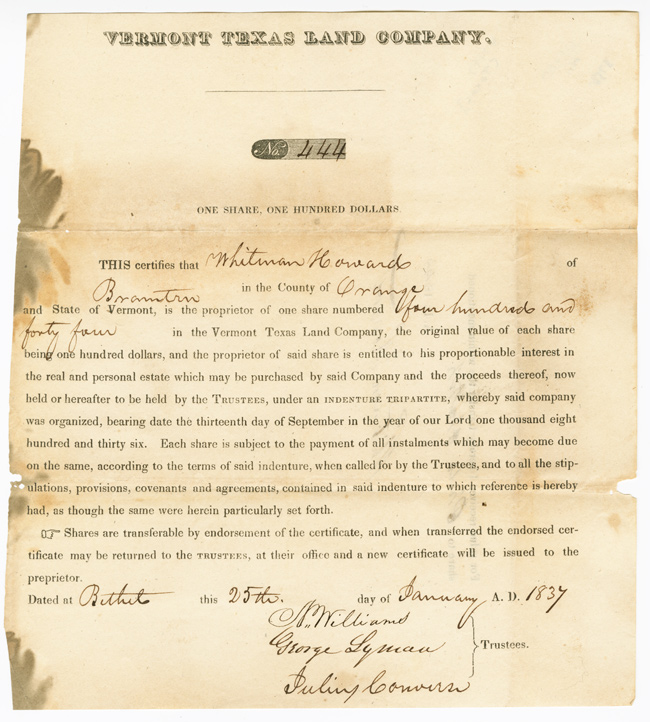 VERMONT TEXAS LAND COMPANY.
No. 444
ONE SHARE, ONE HUNDRED DOLLARS
THIS certifies that Whitman Howard of
Braintrn in the County of Orange
and State of Vermont, is the proprietor of one share numbered four hundred and
forty four in the Vermont Texas Land Company, the original value of each share
being one hundred dollars, and the proprietor of said share is entitled to his proportionable interest in
the real and personal estate which may be purchased by said Company and the proceeds thereof, now
held or hereafter to be held by the TRUSTEES, under an INDENTURE TRIPARTITE, whereby said company
was organized, bearing date the thirteenth day of September in the year of our Lord one thousand eight
hundred and thirty six. Each share is subject to the payment of all instalments which may become due
on the same, according to the terms of said indenture, when called for by the Trustees, and to all the stip-
ulations, provisions, covenants and agreements, contained in said indenture to which reference is hereby
had, as though the same were herein particularly set forth.
☞ Shares are transferable by endorsement of the certificate, and when transferred the endorsed cer-
tificate may be returned to the TRUSTEES, at their office and a new certificate will be issued to the
preprietor.
Dated at Bethel this 25th. day of January A. D. 1837
N. Williams
George Lyman Trustees.
Julius Convers